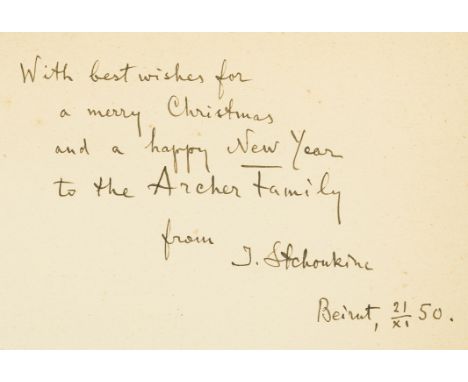 With best wishes for
a merry Christmas
and a happy New Year
to the Archer Family
from
I. Stchoukine
Beirut, 21/XI 50.